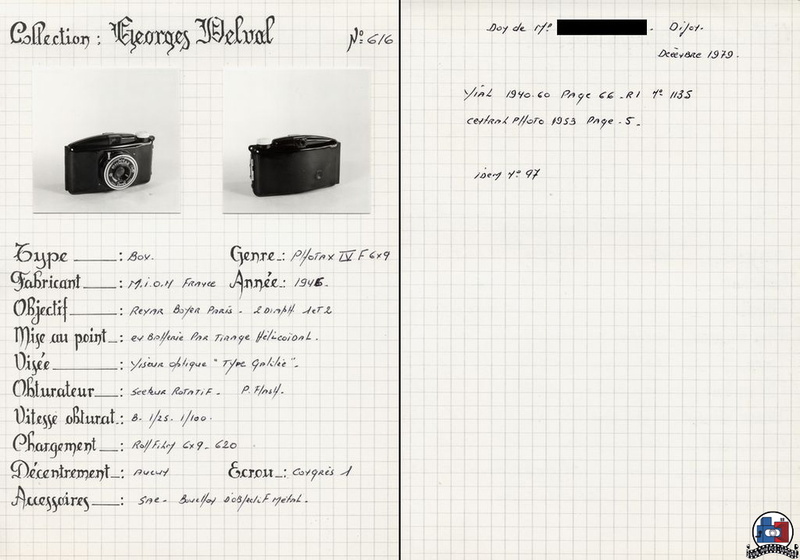 Collection : Georges Delval
N° 616
Type : Box. Genre : Photax IV F 6x9
Fabricant : M.I.O.M France Année : 1946.
Objectif : Boyer Paris - 2 Diaph 1 et 2
Mise au point : en Batterie Par Tirage Hélicoïdal.
Visée : Viseur optique "Type Galilée".
Obturateur : Secteur Rotatif. P. Flash.
Vitesse obturat. : B. 1/25. 1/100.
Chargement : RollFilm 6x9 - 620
Décentrement : Aucun Ecrou : Congrès 1
Accessoires : Sac - Bouchon D'objectif Métal.
Don de Mr Dijon.
Décembre 1979.
Vial 1940.60 Page 66 - R1 N° 1135
Central Photo 1953 Page - 5.
idem N° 97